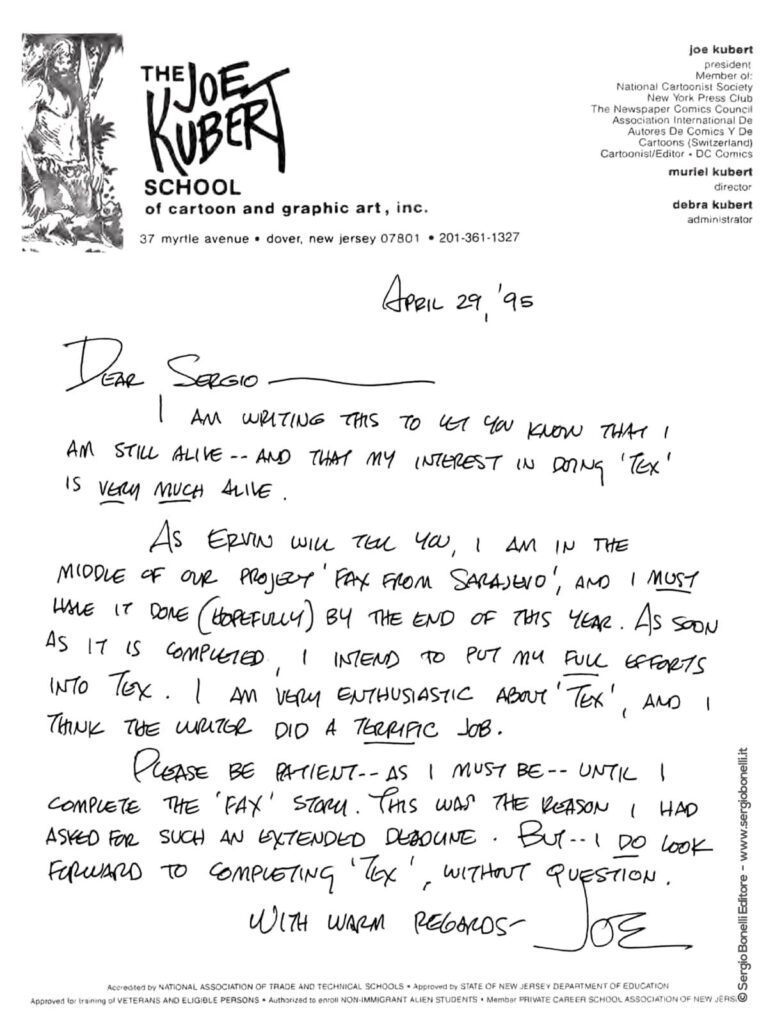 THE JOE
KUBERT
SCHOOL
of cartoon and graphic art, inc.
37 myrtle avenue • dover, new jersey 07801 • 201-361-1327
joe kubert
president
Member of:
National Cartoonist Society
New York Press Club
The Newspaper Comics Council
Association International De
Autores De Comics Y De
Cartoons (Switzerland)
Cartoonist/Editor • DC Comics
muriel kubert
director
debra kubert
administrator
APRIL 29, '95
DEAR SERGIO
I AM WRITING THIS TO LET YOU KNOW THAT I
AM STILL ALIVE -- AND THAT MY INTEREST IN DOING 'TEX'
IS VERY MUCH ALIVE.
AS ERVIN WILL TELL YOU, I AM IN THE
MIDDLE OF OUR PROJECT 'FAX FROM SARAJEVO', AND I MUST
HAVE IT DONE (HOPEFULLY) BY THE END OF THIS YEAR. AS SOON
AS IT IS COMPLETED, I INTEND TO PUT MY FULL EFFORTS
INTO TEX. I AM VERY ENTHUSIASTIC ABOUT 'TEX', AND I
THINK THE WRITER DID A TERRIFIC JOB.
PLEASE BE PATIENT -- AS I MUST BE -- UNTIL I
COMPLETE THE 'FAX' STORY. THIS WAS THE REASON I HAD
ASKED FOR SUCH AN EXTENDED DEADLINE. BUT -- I DO LOOK
FORWARD TO COMPLETING 'TEX', WITHOUT QUESTION.
WITH WARM REGARDS-
JOE
Accredited by NATIONAL ASSOCIATION OF TRADE AND TECHNICAL SCHOOLS • Approved by STATE OF NEW JERSEY DEPARTMENT OF EDUCATION
Approved for training of VETERANS AND ELIGIBLE PERSONS • Authorized to enroll NON-IMMIGRANT ALIEN STUDENTS • Member PRIVATE CAREER SCHOOL ASSOCIATION OF NEW JERS
© Sergio Bonelli Editore - www.sergiobonelli.it